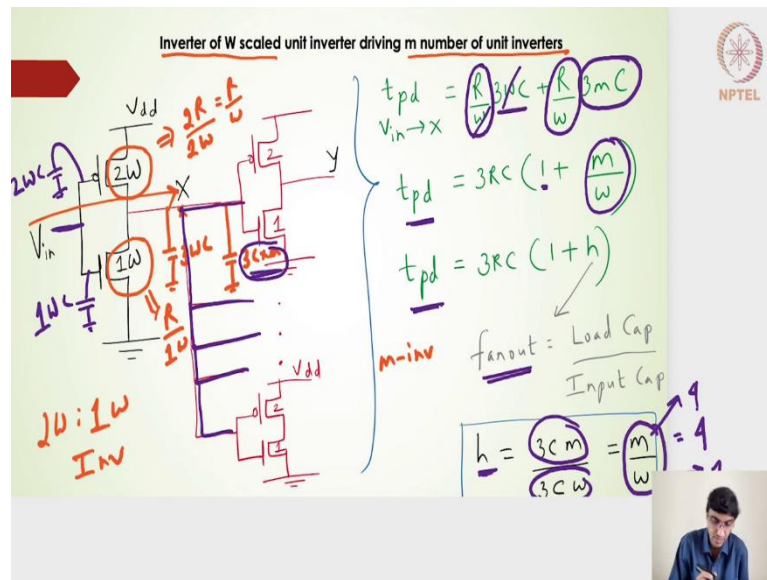 Inverter of W scaled unit inverter driving m number of unit inverters
NPTEL
Vdd
⇒ 2R/2W = R/W
2WC
2W
X
2
y
Vin
1
1W
3WC
3C×m
1WC
R/1W
m-inv
Vdd
2W : 1W
Inv
2
1
tpd = R/W 3WC + R/W 3mC
Vin → X
tpd = 3RC (1 + m/W)
tpd = 3RC (1 + h)
fanout = Load Cap / Input Cap
h = 3Cm / 3CW = m/W = 4
4